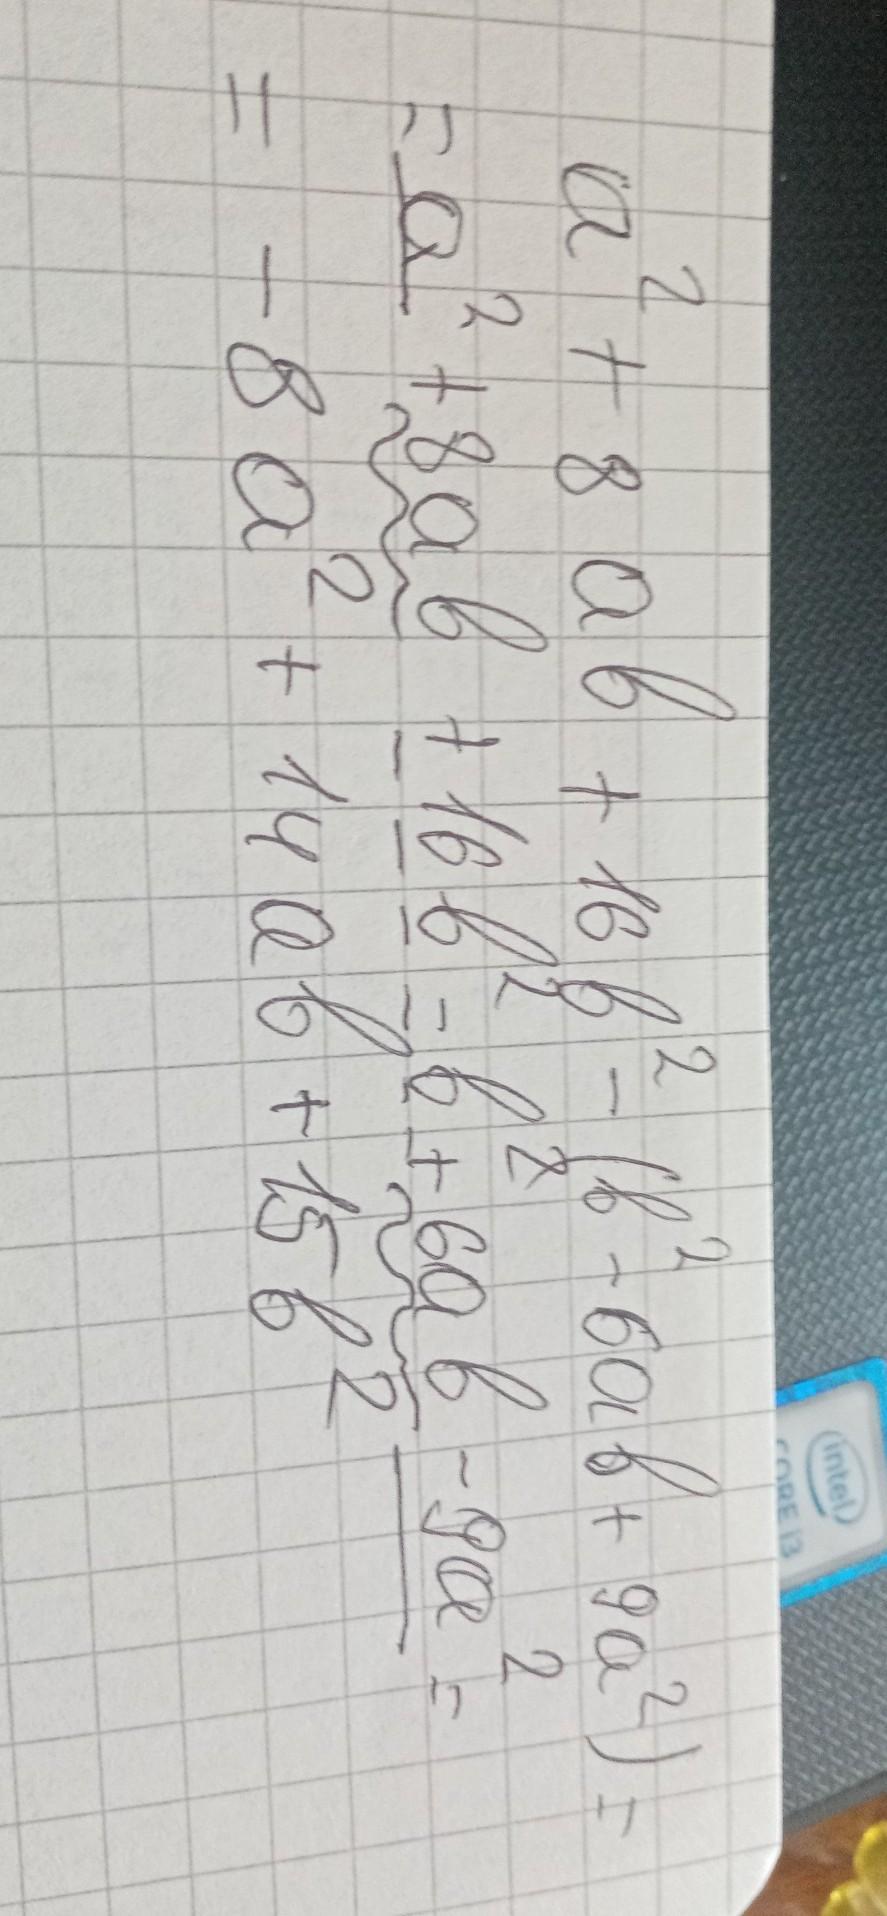 a² + 8ab + 16b² - (b² - 6ab + 9a²) =
= a² + 8ab + 16b² - b² + 6ab - 9a² =
= - 8a² + 14ab + 15b²
intel
CORE i3